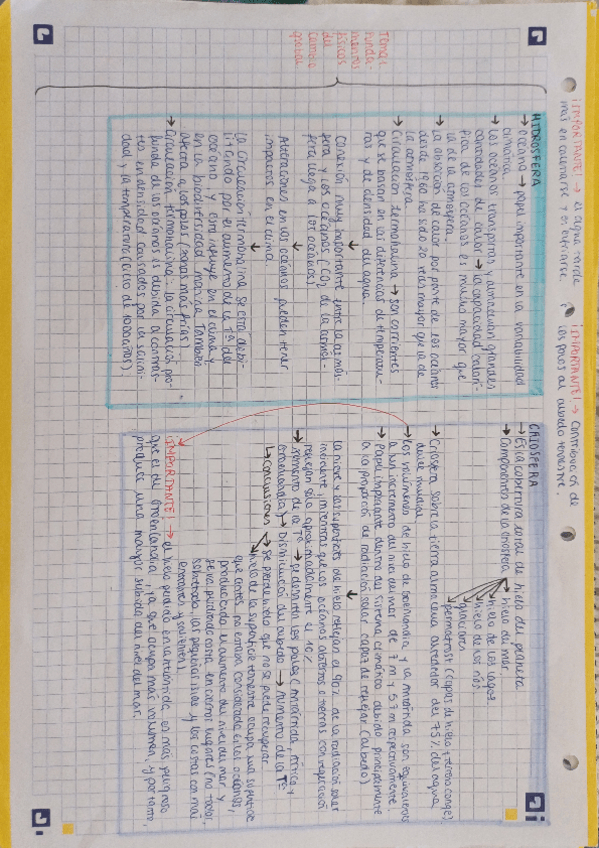 ¡IMPORTANTE! → el agua tarda
más en calentarse y en enfriarse.
¡IMPORTANTE! → Contribución de
los polos al albedo terrestre.
Temas
funda-
mentos
físicos
del
cambio
global
HIDROSFERA
→ Océano → papel importante en la variabilidad
climática
→ Los océanos transportan y almacenan grandes
cantidades de calor → la capacidad calorí-
fica de los océanos es mucho mayor que
la de la atmósfera.
→ La absorción de calor por parte de los océanos
desde 1960 ha sido 20 veces mayor que la de
la atmósfera.
→ Circulación termohalina → son corrientes
que se basan en las diferencias de temperatu-
ras y de densidad del agua.
Conexión muy importante entre la atmós-
fera y los océanos (CO2 de la atmós-
fera llega a los océanos)
Alteraciones en los océanos pueden tener
impactos en el clima.
La circulación termohalina se está debi-
litando por el aumento de la Tª del
océano, y ésto influye en el clima y
en la biodiversidad marina. También
afecta a los polos (zonas más frías)
→ Circulación termohalina: la circulación pro-
funda de los océanos es debida al contras-
te en densidad causados por la salini-
dad y la temperatura (ciclo de 1000 años).
CRIOSFERA
→ Es la cobertura total de hielo del planeta
→ Componentes de la criosfera → hielo del mar
hielo de los lagos
hielo de los ríos
glaciares
permafrost (capas de hielo y terreno congel)
→ Criosfera sobre la tierra almacena alrededor del 75% del agua
dulce mundial
→ Los volúmenes de hielo de Groenlandia y la Antártida son equivalentes
a un incremento del nivel del mar de 7 m y 57 m respectivamente.
→ Papel importante dentro del sistema climático debido principalmente
a la proporción de radiación solar capaz de reflejar (albedo)
La nieve y las superficies de hielo reflejan el 90% de la radiación solar
incidente, mientras que los océanos abiertos o tierras con vegetación
reflejan sólo aproximadamente el 10%.
→ Aumento de la Tª → se derriten los polos (Antártida, Ártico y
Groenlandia) → Disminución del albedo → Aumento de la Tª
↳ conclusiones → se pierde hielo que no se puede recuperar
hielo de la superficie terrestre ocupa una superficie
que antes no estaba considerada en los océanos,
produciendo un aumento del nivel del mar y
salvo, perdiendo costa en ciertos lugares (no todos,
sobretodo, las pequeñas islas y las costas con más
erosión y salientes)
¡IMPORTANTE! → el hielo perdido en la Antártida es más peligroso
que el de Groenlandia, ya que ocupa más volumen, y por tanto,
produce una mayor subida del nivel del mar.